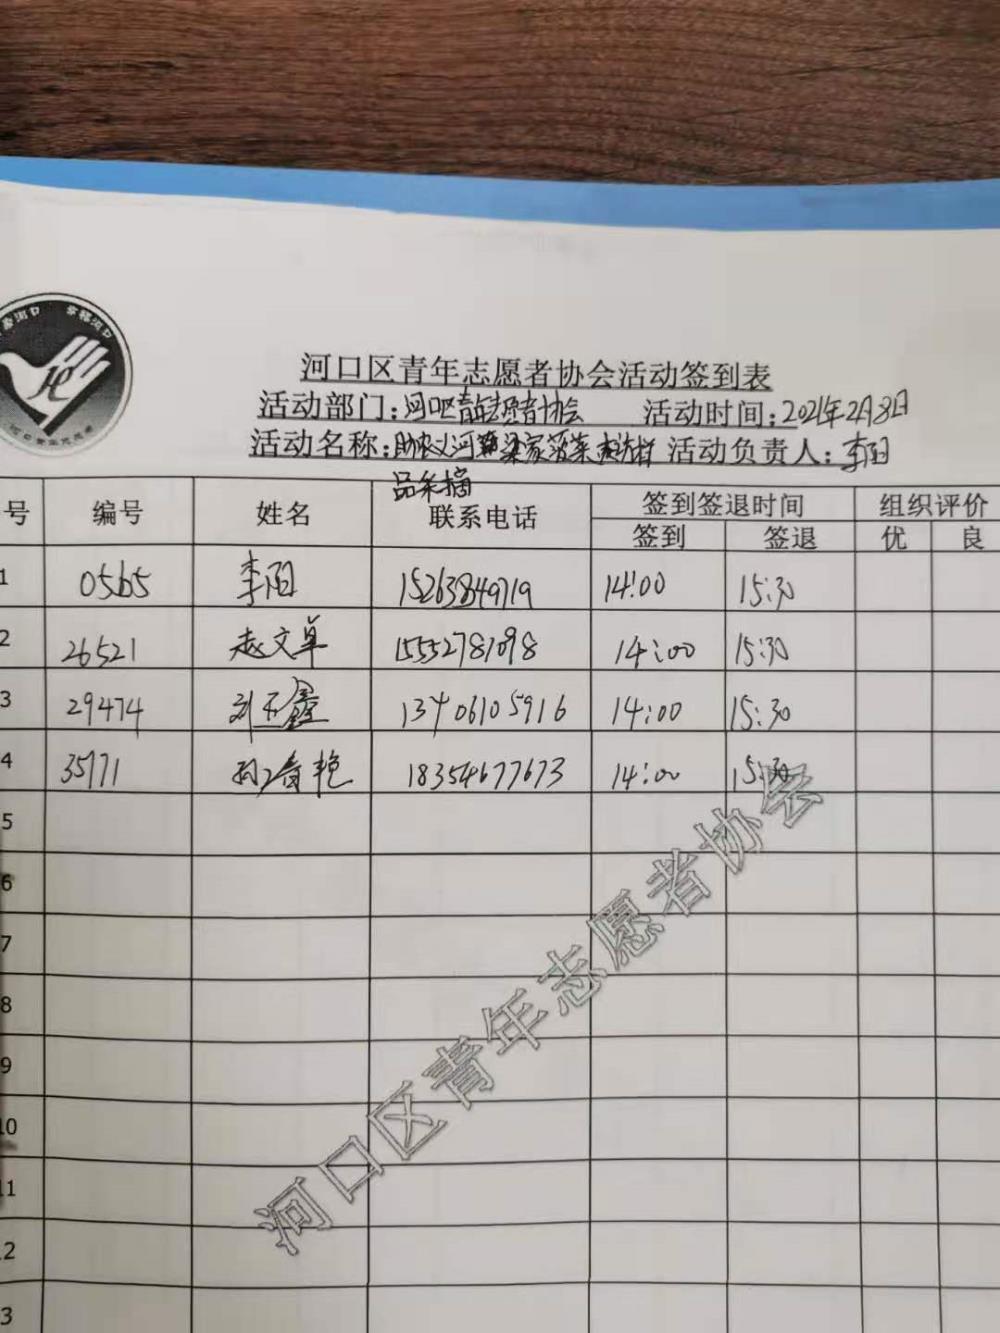 河口区青年志愿者协会活动签到表
活动部门：河口区青年志愿者协会 活动时间：2021年2月8日
活动名称：助农 河 梁家菠菜 活动负责人：李阳
品采摘
号 编号 姓名 联系电话 签到签退时间 组织评价
签到 签退 优 良
1 0565 李阳 15263849719 14:00 15:30
2 26521 赵文卓 15552781098 14:00 15:30
3 29474 刘 鑫 13406105916 14:00 15:30
4 35771 孙 艳 18354677673 14:00 15:30
5
6
7
8
9
10
11
12
13
河口区青年志愿者协会